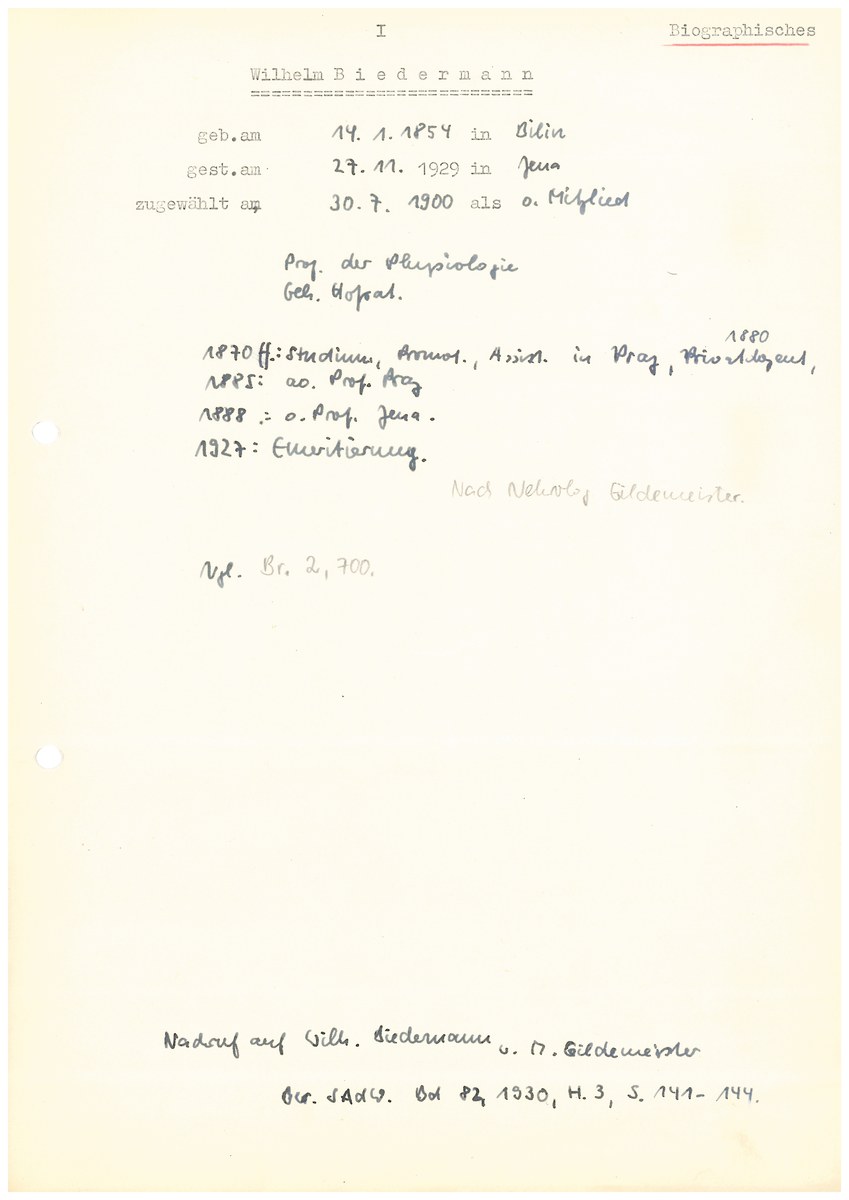 I
Biographisches
Wilhelm B i e d e r m a n n
geb.am 14. 1. 1854 in Bilin
gest.am 27. 11. 1929 in Jena
zugewählt am 30. 7. 1900 als o. Mitglied
Prof. der Physiologie
Geh. Hofrat.
1880
1870 ff.: Studium, Promot., Assist. in Prag, Privatdozent,
1885: ao. Prof. Prag
1888 : o. Prof. Jena.
1927: Emeritierung.
Nach Nekrolog Gildemeister.
Vgl. Br. 2, 700.
Nachruf auf Wilh. Biedermann v. M. Gildemeister
Ber. SAdW. Bd 82, 1930, H. 3, S. 141- 144.